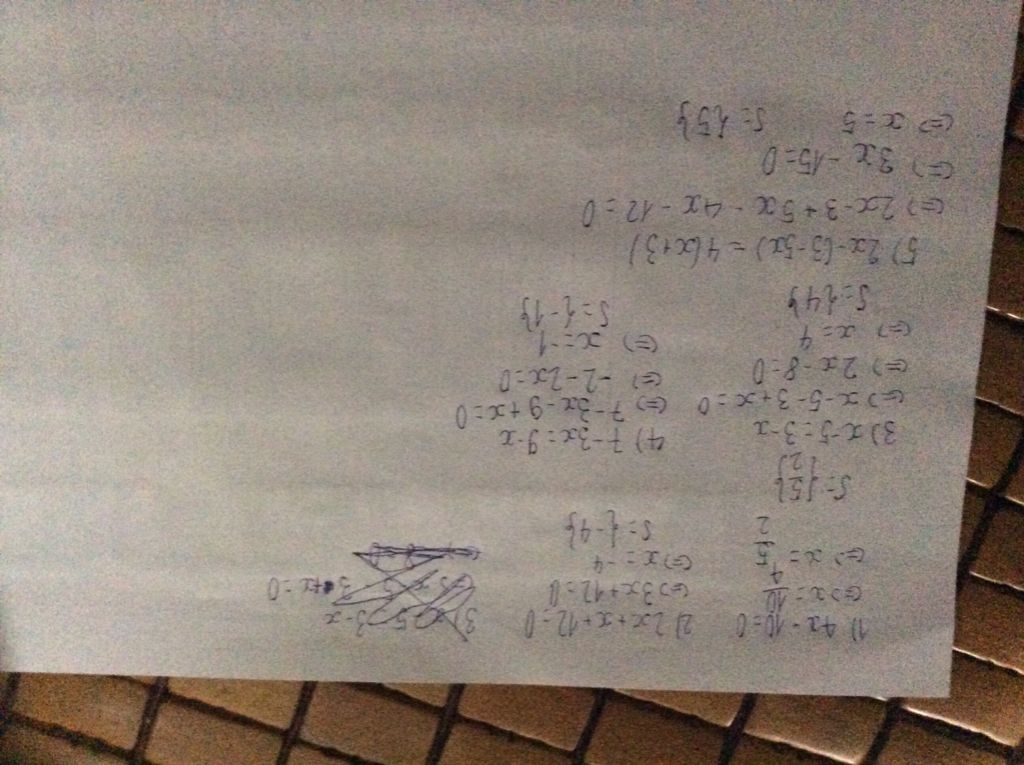 1) 4x - 10 = 0
(=) x = 10/4
(=) x = 5/2
S = {5/2}
2) 2x + x + 12 = 0
(=) 3x + 12 = 0
(=) x = -4
S = {-4}
3) x - 5 = 3 - x
(=) x - 5 - 3 + x = 0
(=) 2x - 8 = 0
(=) x = 4
S = {4}
4) 7 - 3x = 9 - x
(=) 7 - 3x - 9 + x = 0
(=) -2 - 2x = 0
(=) x = -1
S = {-1}
5) 2x - (3 - 5x) = 4(x + 3)
(=) 2x - 3 + 5x - 4x - 12 = 0
(=) 3x - 15 = 0
(=) x = 5 S = {5}